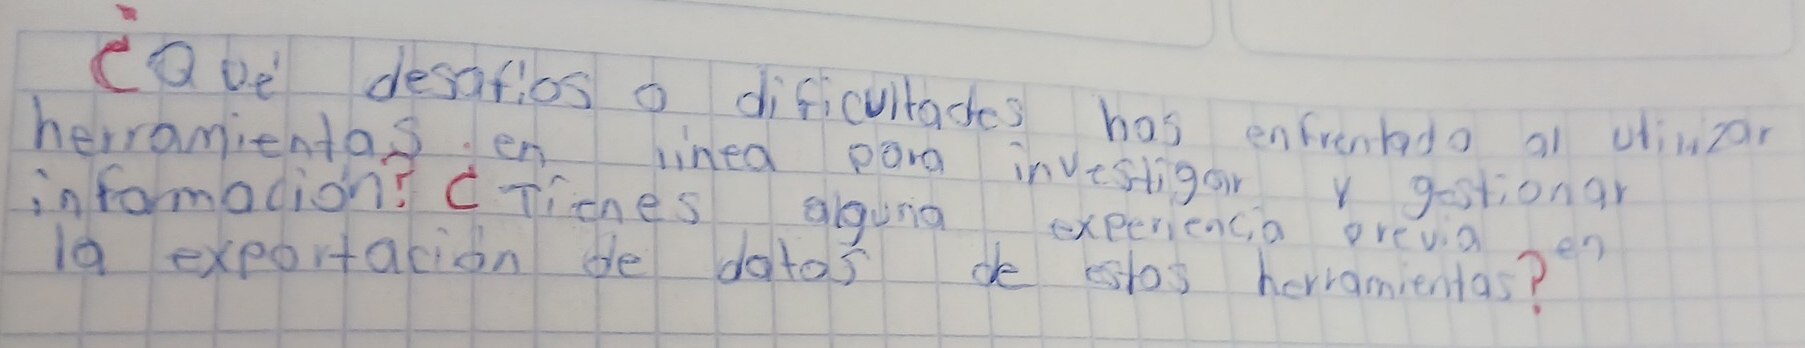 ¿Qué desafíos o dificultades has enfrentado al utilizar
herramientas en linea para investigar y gestionar
información? ¿Tienes alguna experiencia previa en
la exportación de datos de estas herramientas?